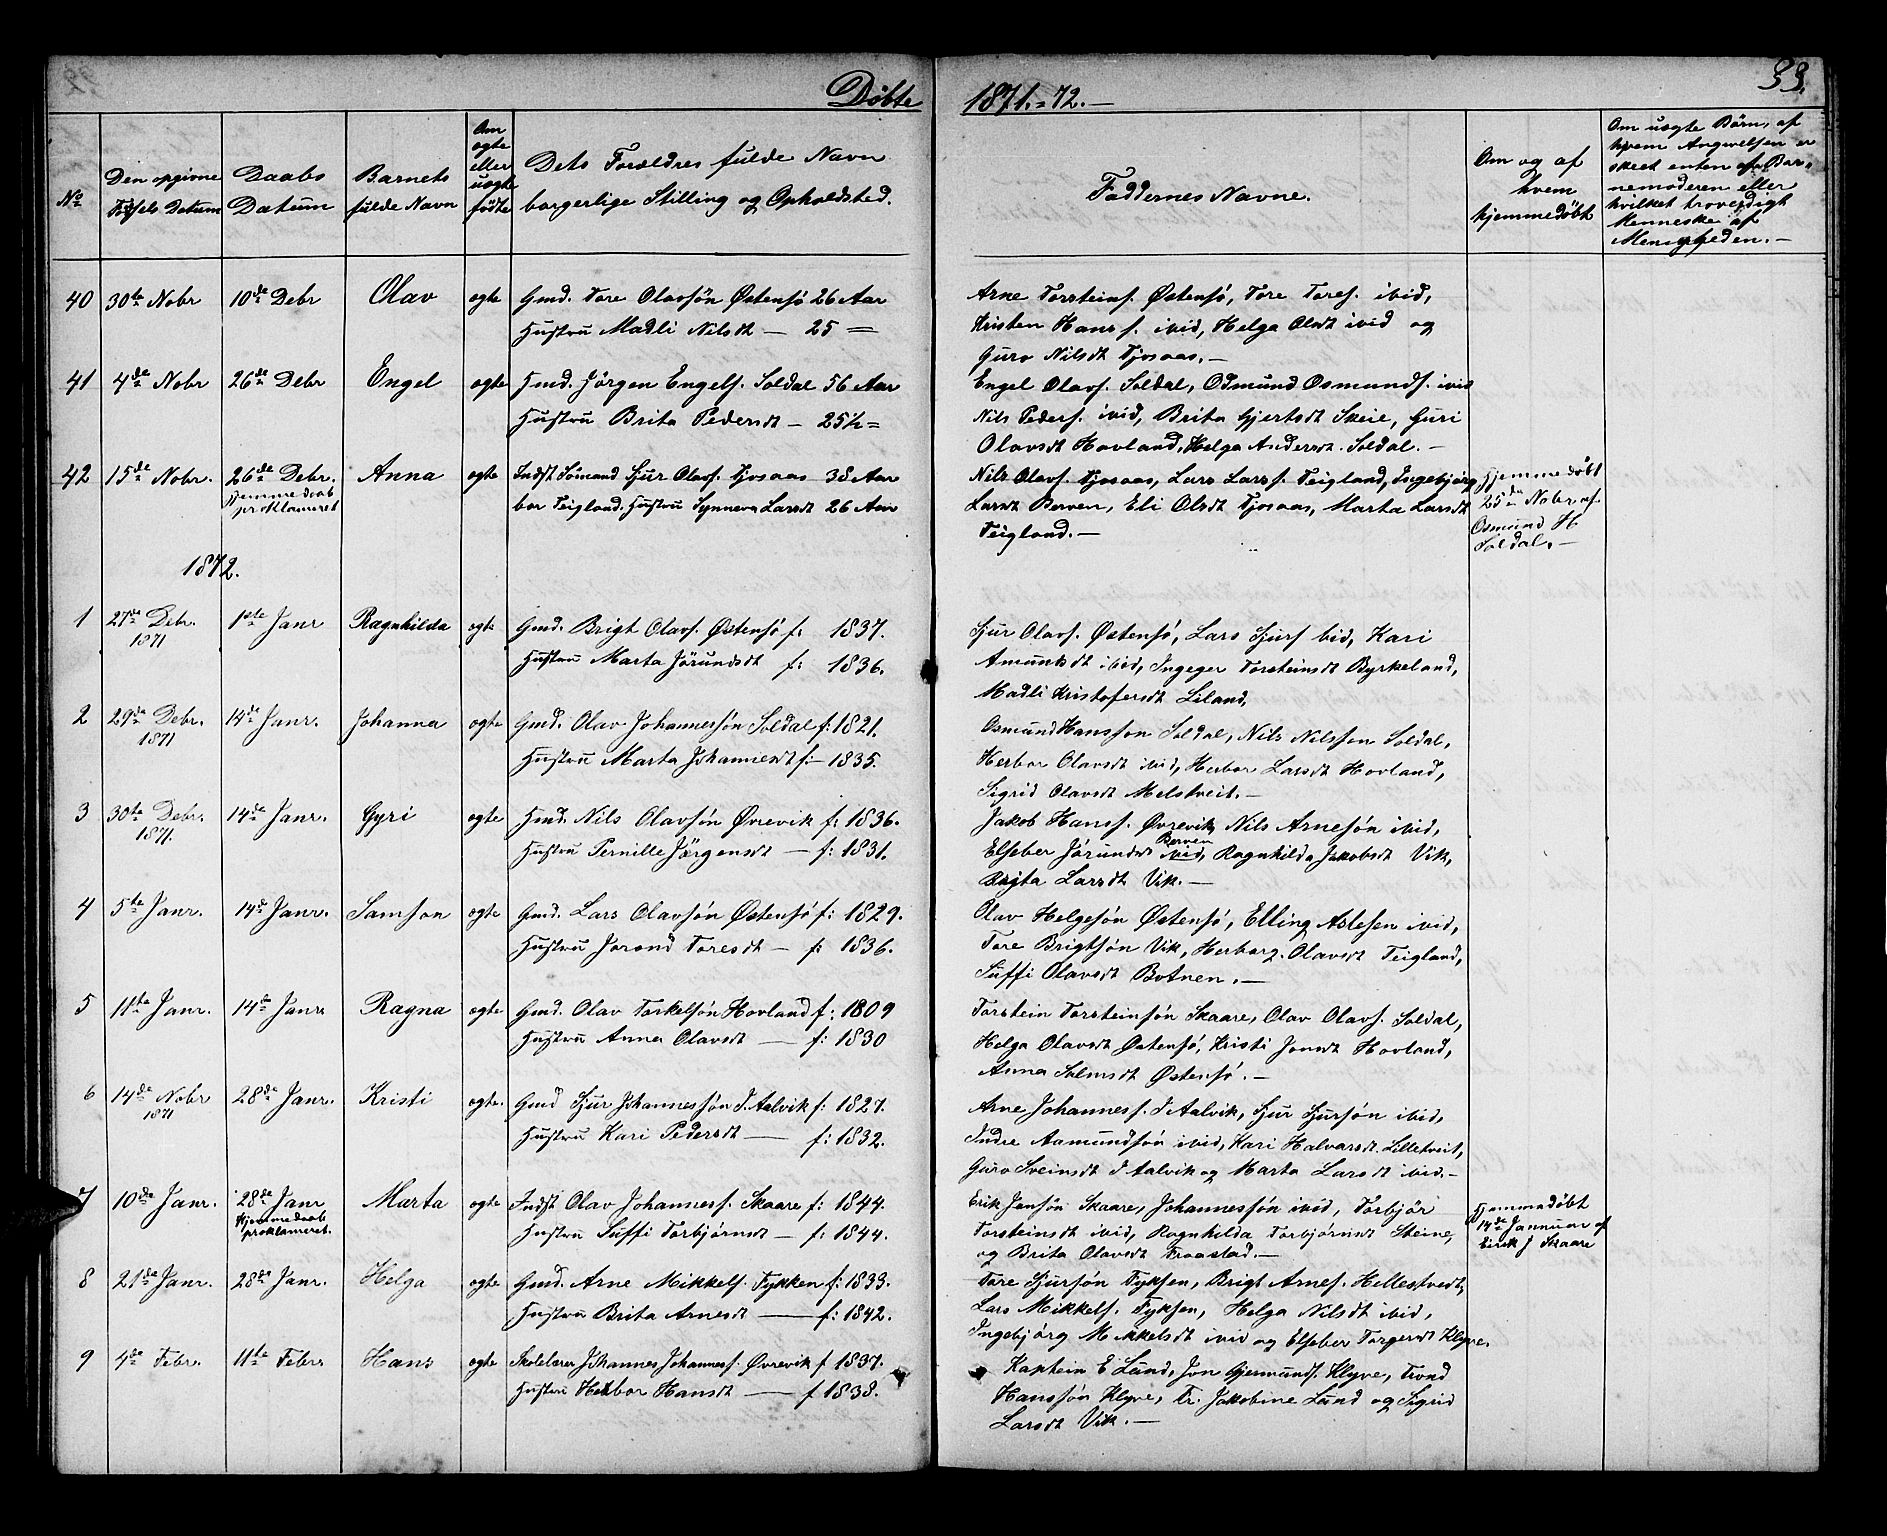 Døbte 1871.=72.— 33.
No
Den opgivne
Fødsels Datum
Daabs
Datum
Barnets
fulde Navn
Om
ægte
eller
uægte
fødte
Dets Forældres fulde Navn
borgerlige Stilling og Opholdsted.
Faddernes Navne.
Om og af
hvem
hjemmedøbt
Om uægte Børn, af
hvem Angivelsen er
skeet enten af Bar=
nemoderen eller
hvilket troverdigt
Menneske af
Menigheden.—
40 30te Nobr 10de Debr Olav ægte Gmd. Tore Olavsön Østensö 26 Aar
Hustru Madli Nilsdt — 25 =
Arne Torsteins. Østensö, Tore Tores. ibid,
Kristen Hanss. ibid, Helga Olsdt ibid og
Guro Nilsdt Tjosaas.—
41 4de Nobr 26de Debr Engel ægte Hmd. Jörgen Engels. Soldal 56 Aar
Hustru Brita Pedersdt — 25½ =
Engel Olavs. Soldal, Odmund Osmunds. ibid
Nils Peders. ibid, Brita Gjertsdt Skeie, Guri
Olavsdt Hovland, Helga Andersdt. Soldal.—
42 15de Nobr. 26de Debr. Anna ægte Indst Sömand Sjur Olavs. Tjosaas 38 Aar
hjemmedaab
proklameret
bor Teigland. Hustru Synneva Larsdt 26 Aar
Nils Olavs. Tjosaas, Lars Larss. Teigland, Ingebjörg
Larsdt Berven, Eli Olsdt Tjosaas, Marta Larsdt
Teigland.—
Hjemmedøbt
25de Nobr. af
Osmund H.
Soldal.—
1872.
1 27de Debr. 1ste Janr Ragnhilda ægte Gmd. Brigt Olavs. Østensö f: 1837.
1871
Hustru Marta Jörundsdt f: 1836.
Sjur Olavs. Østensö, Lars Sjurs ibid, Kari
Amundsdt ibid, Ingeger Torsteinsdt Byrkeland,
Madli Kristofersdt Liland,
2 29de Debr. 14de Janr. Johanna ægte Gmd. Olav Johannessön Soldal f: 1821.
1871
Hustru Marta Johannesdt f:— 1835.
Osmund Hansson Soldal, Nils Nilsson Soldal,
Herbor Olavsdt ibid, Herbor Larsdt Hovland,
Sigrid Olavsdt Melstveit.—
3 30te Debr. 14de Janr. Gyri ægte Hmd. Nils Olavsön Øvrevik f: 1836.
1871.
Hustru Pernille Jörgensdt — f: 1831.
Jakob Hanss. Øvrevik, Nils Arnesön ibid,
Berven
Elseber Jörundsdt ibid, Ragnhilda Jakobsdt Vik,
Brita Larsdt Vik.—
4 5te Janr. 14de Janr. Samson ægte Gmd. Lars Olavsön Østensö f: 1829.
Hustru Jorond Toresdt — f: 1836.
Olav Helgesön Østensö, Elling Aslesen ibid,
Tore Brigtsön Vik, Herborg Olavsdt Teigland,
Siffi Olavsdt Botnen.—
5 11te Janr. 14de Janr. Ragna ægte Gmd. Olav Torkelsön Hovland f: 1809
Hustru Anna Olavsdt — f: 1830
Torstein Torsteinsön Skaare, Olav Olavs. Soldal,
Helga Olavsdt Østensö, Kristi Jonsdt Hovland,
Anna Salmsdt Østensö.—
6 14de Nobr 28de Janr. Kristi ægte. Gmd Sjur Johannessön I. Aalvik f: 1827.
1871
Hustru Kari Pedersdt — f: 1832.
Arne Johanness. I. Aalvik, Sjur Sjursön ibid,
Indre Aamundsön ibid, Kari Halvarsdt. Lilletveit,
Guro Sveinsdt I Aalvik og Marta Larsdt ibid.—
7 10de Janr. 28de Janr Marta ægte Indst Olav Johanness. Skaare f: 1844.
Hjemmedaab
proklameret.
Hustru Siffi Torbjörnsdt — f: 1844.
Erik Jonsön Skaare, Johannessön ibid, Torbjör
Torsteinsdt ibid, Ragnhilda Torbjörnsdt Steine,
og Brita Olavsdt Fraastad.—
Hjemmedøbt
14de Januar af
Eirik J Skaare
8 21de Janr. 28de Janr. Helga ægte Gmd. Arne Mikkels. Fykken f: 1833.
Hustru Brita Arnesdt — f: 1842.
Tore Sjursön Fyksen, Brigt Arnes. Hellestvedt,
Lars Mikkels. Fyksen, Helga Nilsdt ibid,
Ingebjörg Mikkelsdt ibid og Elseber Torgersdt Klyve.
9 4de Febr. 11te Febr. Hans ægte Skolelærer Johannes Johanness. Øvrevik f 1837.
Hustru Herbor Hansdt — f 1838.
Kaptein E Lund, Jon Gjermunds. Klyve, Trond
Hanssön Klyve, Fr. Jakobine Lund og Sigrid
Larsdt Vik.—